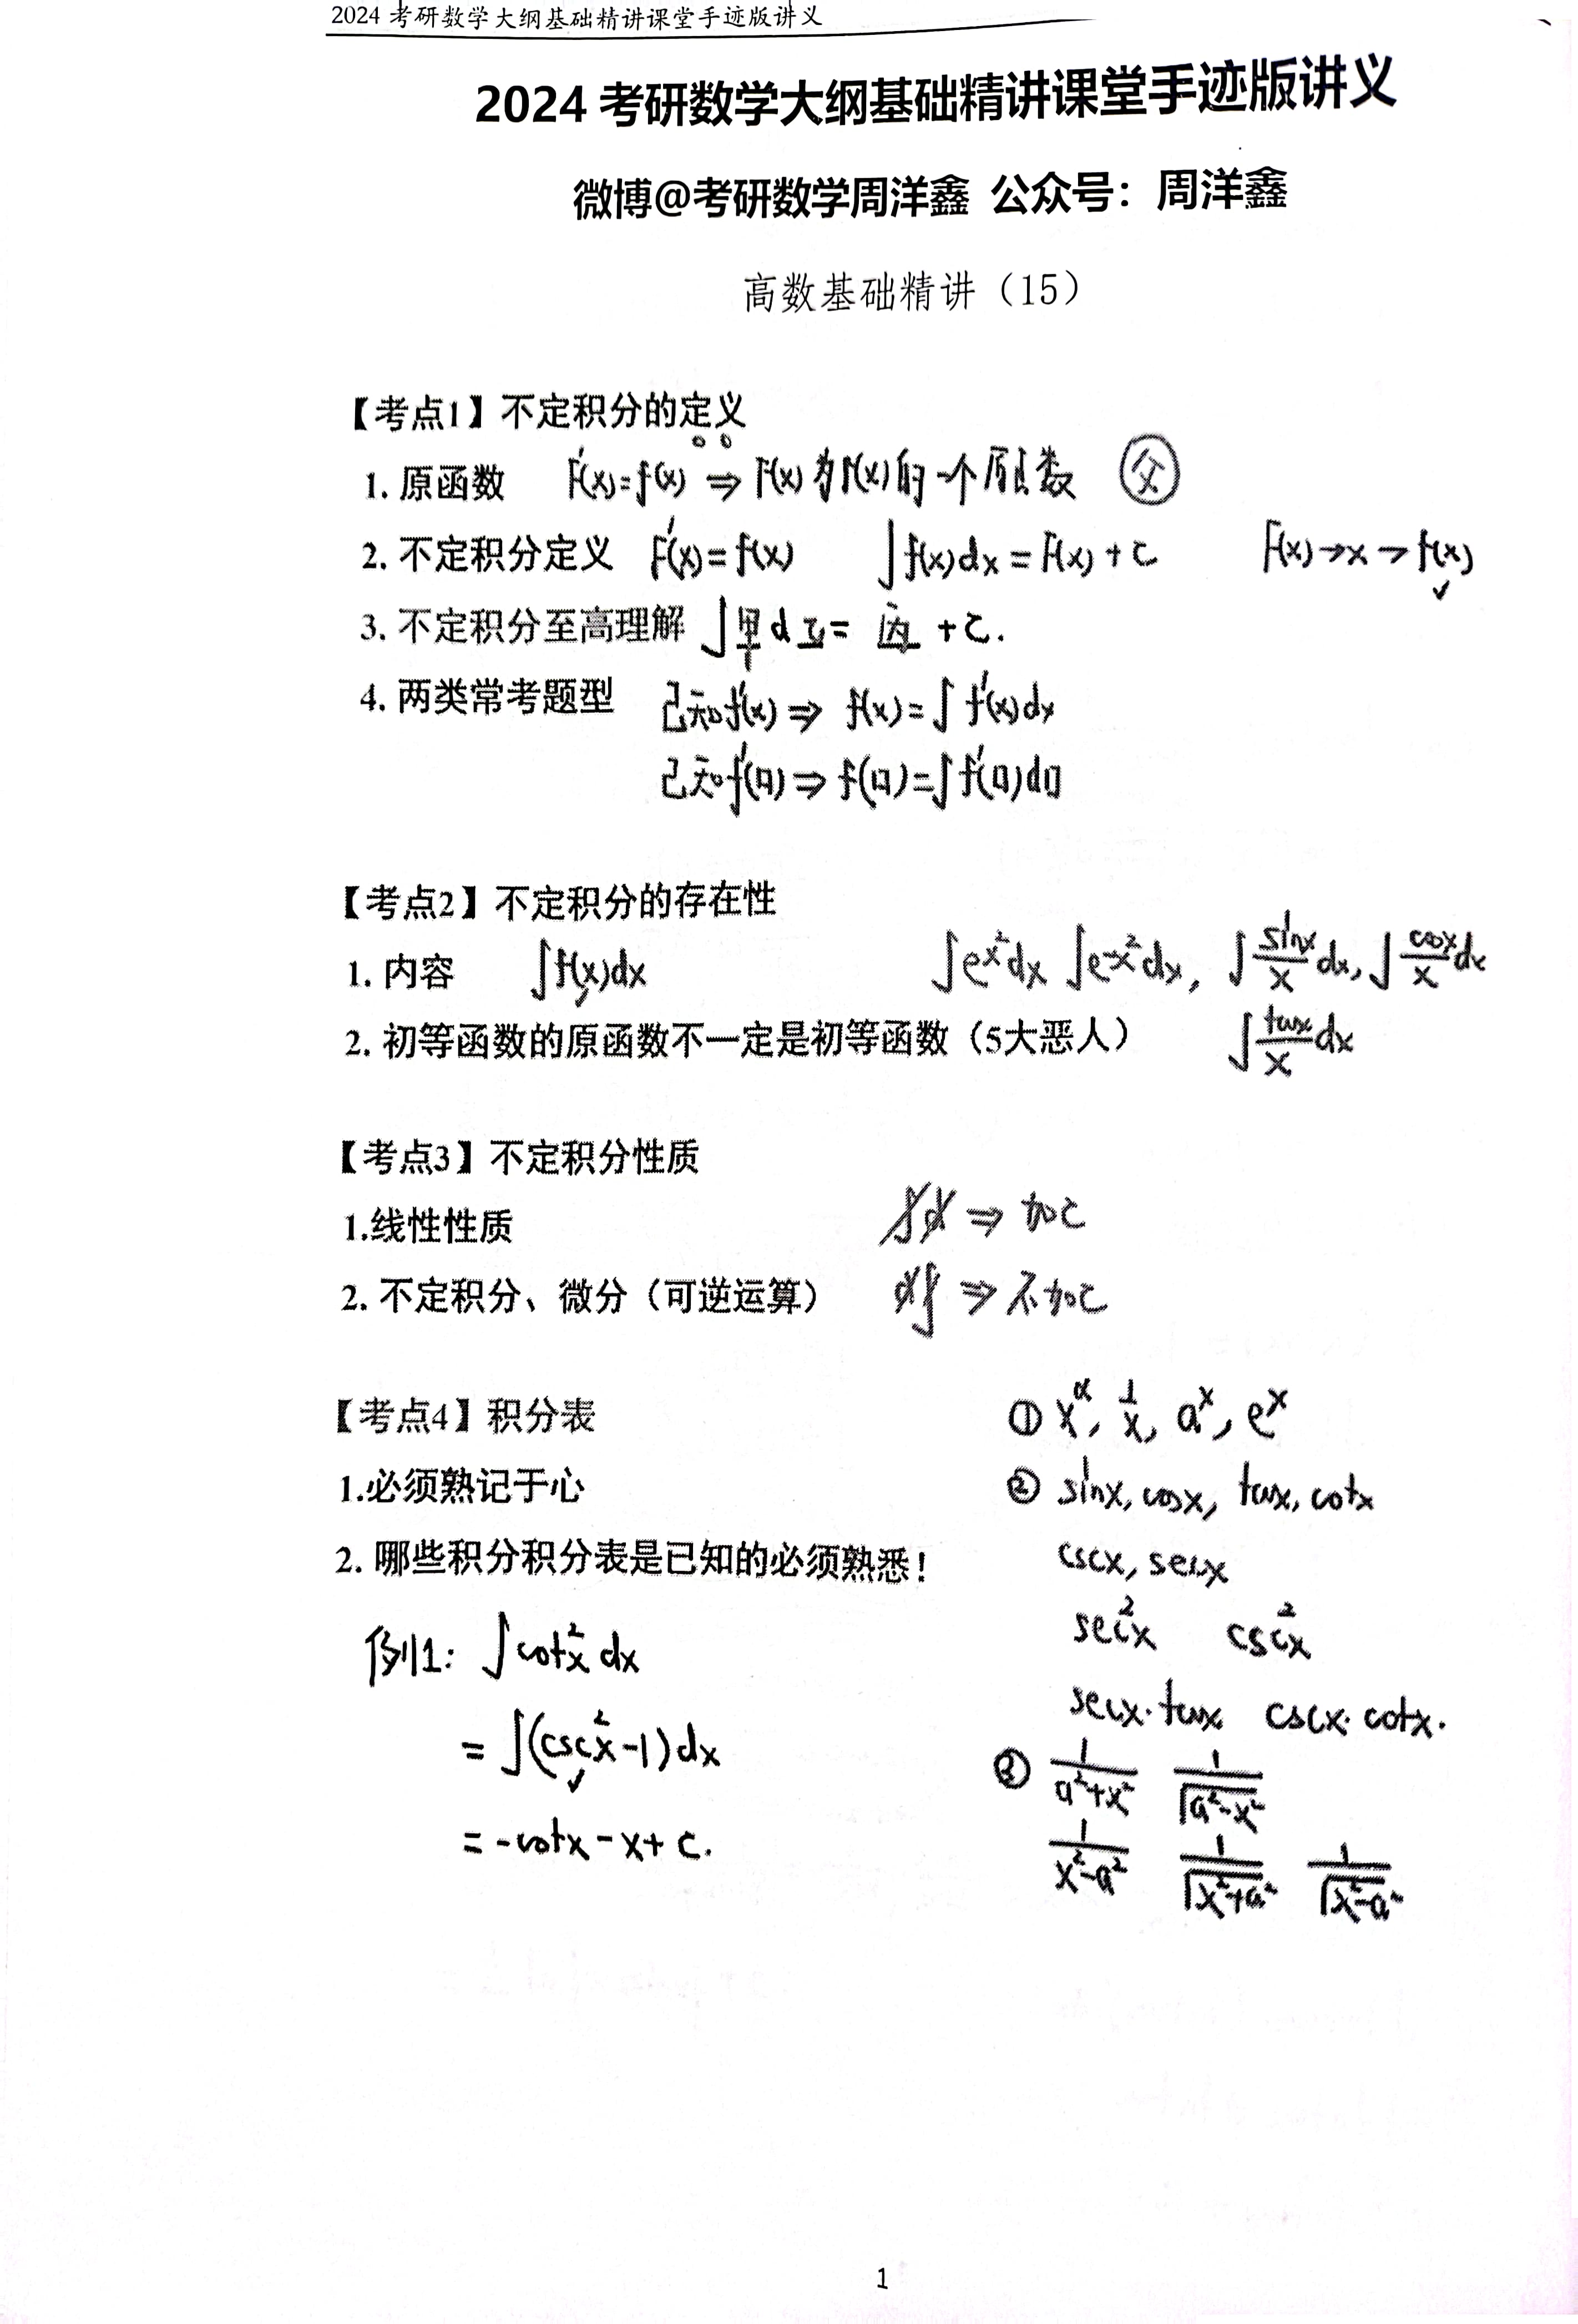 2024 考研数学大纲基础精讲课堂手迹版讲义
2024 考研数学大纲基础精讲课堂手迹版讲义
微博@考研数学周洋鑫 公众号：周洋鑫
高数基础精讲（15）
【考点1】不定积分的定义
1. 原函数 F'(x)=f(x) ⇒ F(x)为f(x)的一个原函数 父
2. 不定积分定义 F'(x)=f(x) ∫f(x)dx=F(x)+C F(x)→x→f(x) ✓
3. 不定积分至高理解 ∫甲 d 乙= 丙 +C.
4. 两类常考题型 已知f'(x)⇒ f(x)=∫f'(x)dx
已知f'(口)⇒f(口)=∫f'(口)d口
【考点2】不定积分的存在性
1. 内容 ∫f(x)dx ∫e^{x²}dx ∫e^{-x²}dx, ∫\frac{sinx}{x}dx, ∫\frac{cosx}{x}dx
2. 初等函数的原函数不一定是初等函数（5大恶人） ∫\frac{tanx}{x}dx
【考点3】不定积分性质
1.线性性质 ∫d ⇒ 加C
2. 不定积分、微分（可逆运算） d∫ ⇒ 不加C
【考点4】积分表 ① x^α, \frac{1}{x}, a^x, e^x
1.必须熟记于心 ② sinx, cosx, tanx, cotx
2. 哪些积分积分表是已知的必须熟悉！ cscx, secx
例1: ∫cot²x dx sec²x csc²x
=∫(csc²x-1)dx secx·tanx cscx·cotx.
③ \frac{1}{a²+x²} \frac{1}{\sqrt{a²-x²}}
=-cotx-x+C. \frac{1}{x²-a²} \frac{1}{\sqrt{x²+a²}} \frac{1}{\sqrt{x²-a²}}
1